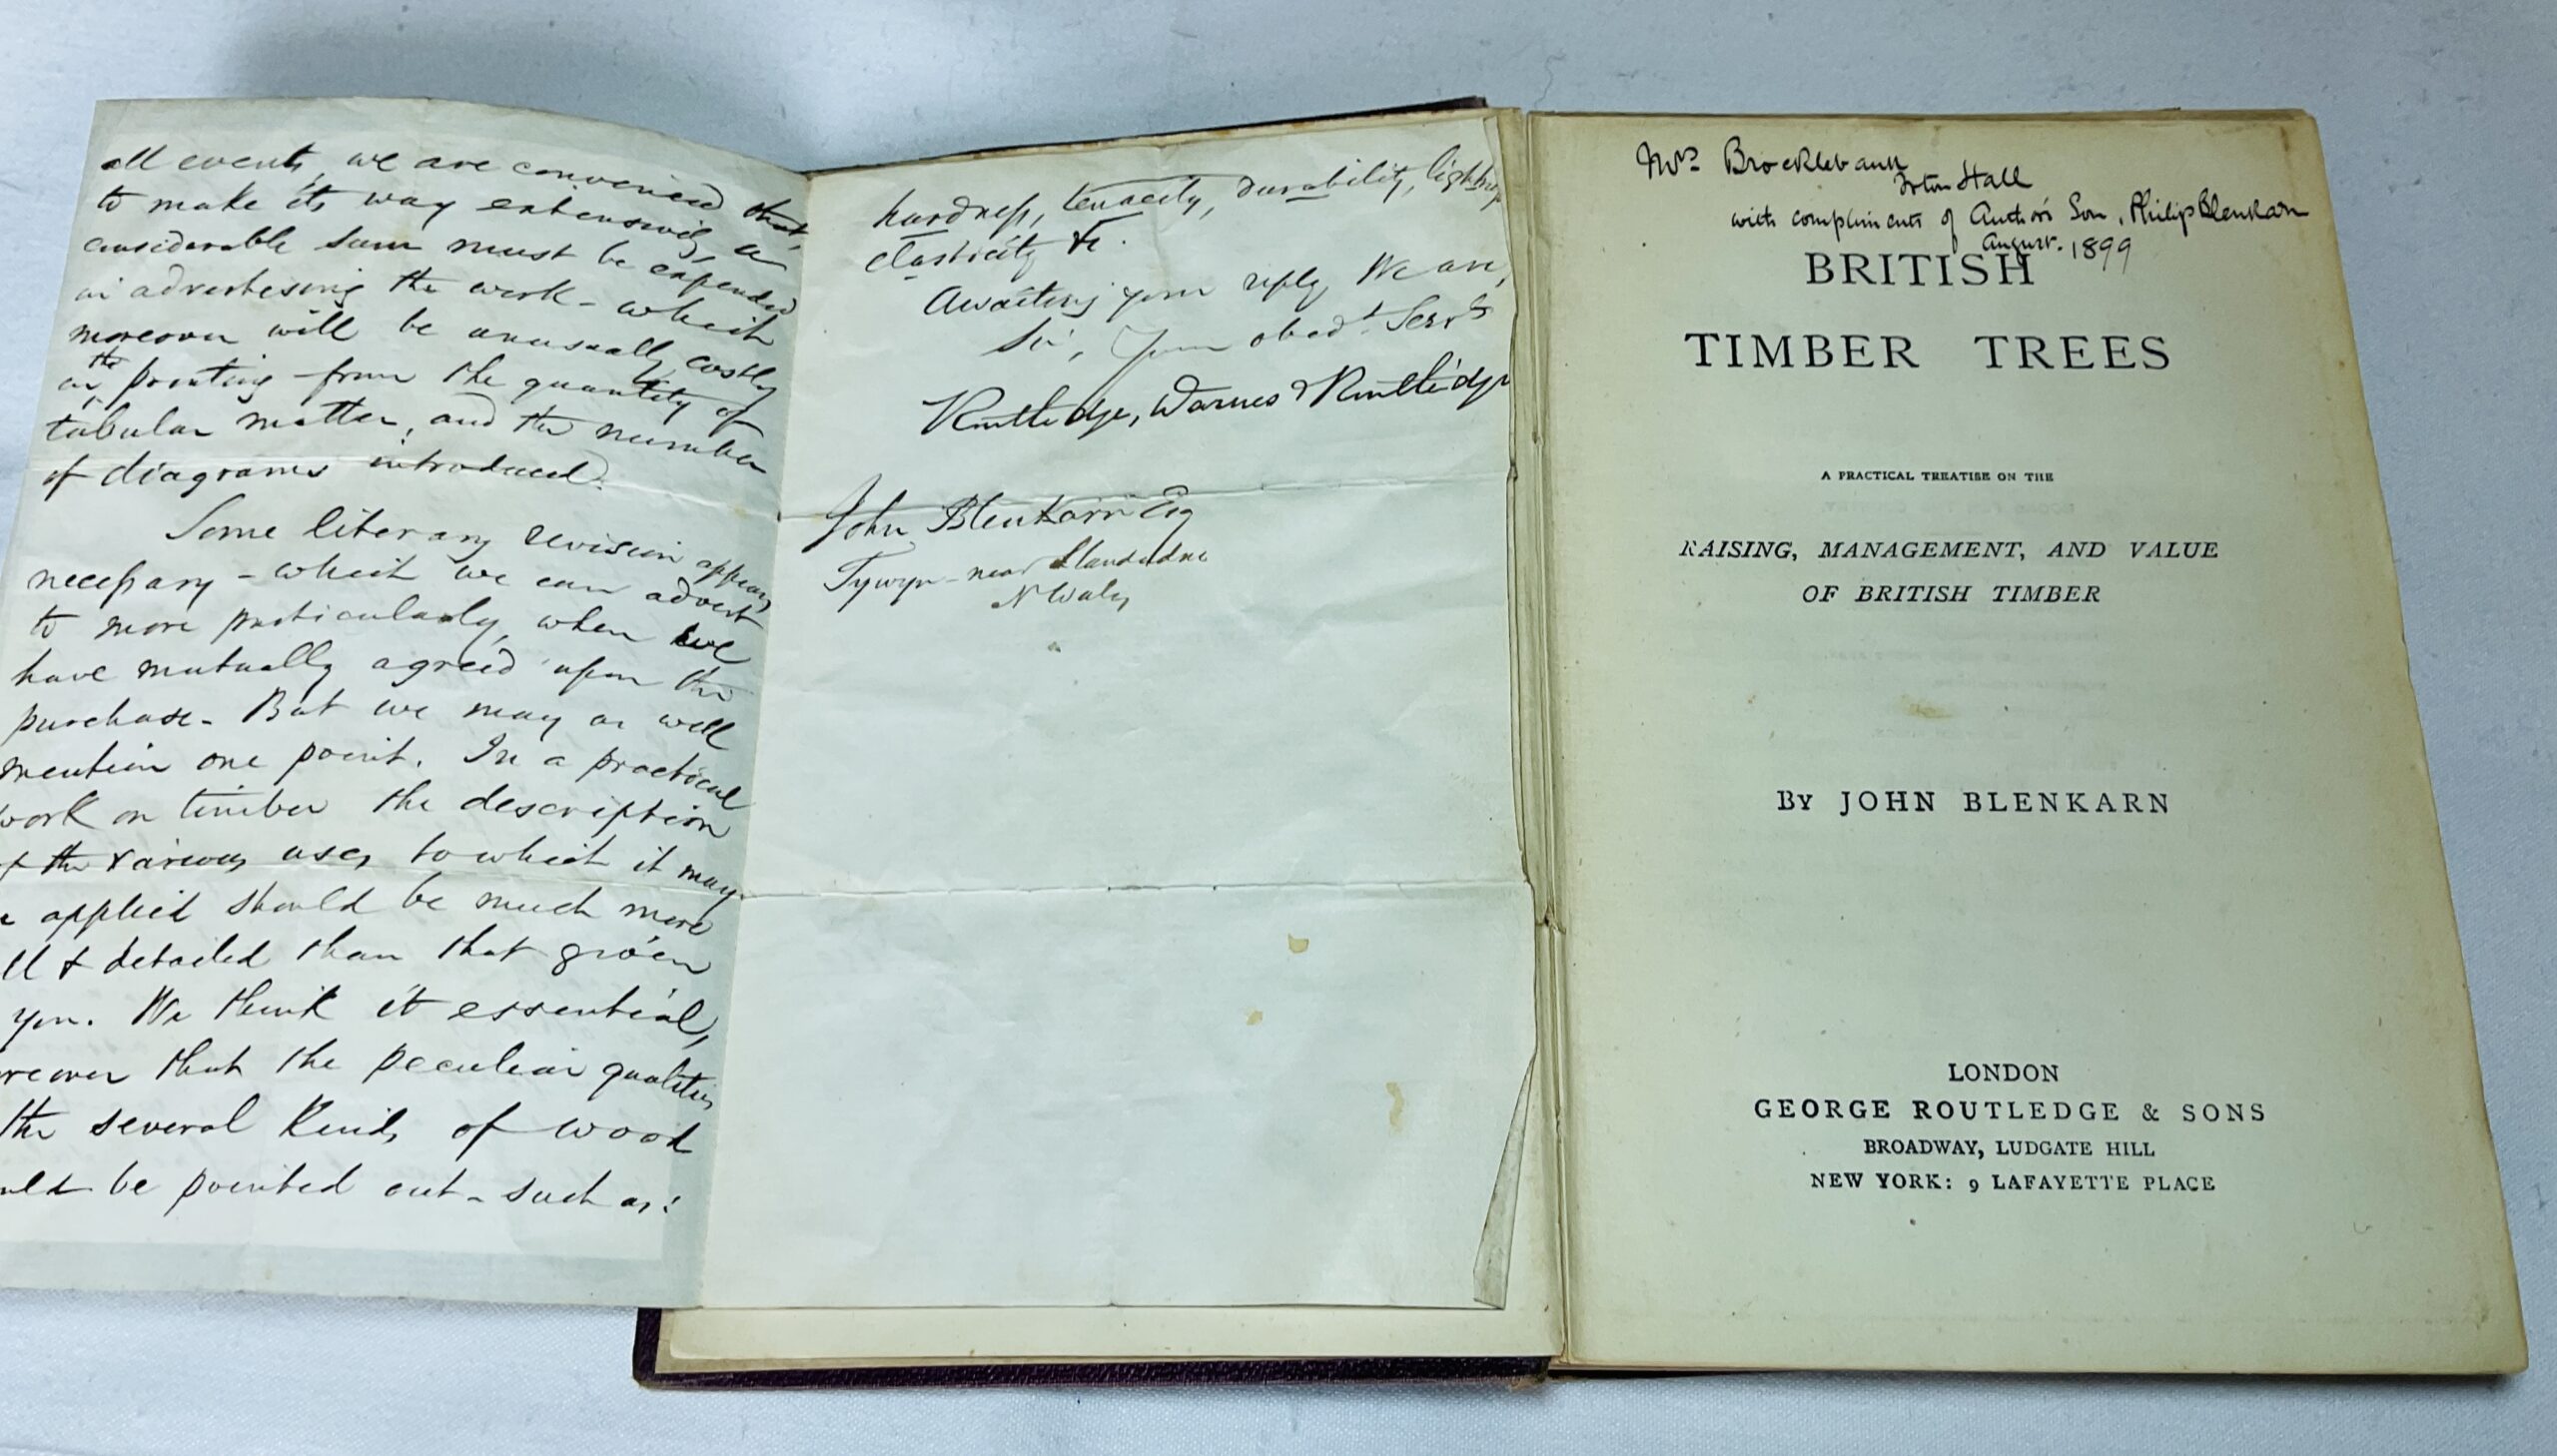 all events, we are convinced that,
to make its way extensively, a
considerable sum must be expended
in advertising the work - which
moreover will be unusually costly
in the printing - from the quantity of
tabular matter, and the number
of diagrams introduced.
Some literary revision appears
necessary - which we can advert
to more particularly, when we
have mutually agreed upon the
purchase. But we may as well
mention one point. In a practical
work on timber the description
of the various uses to which it may
applied should be much more
& detailed than that given
you. We think it essential,
that the peculiar qualities
the several kinds of wood
be pointed out - such as:
hardness, tenacity, durability,
elasticity &c.
Awaiting your reply, We are,
Sir, Your obedt. Servts
Routledge, Warnes & Routledge
John Blenkarn Esq
Tywyn - near Llandudno
N Wales
Mrs Brocklebank
Irton Hall
with compliments of Author's Son, Philip Blenkarn
August. 1899
BRITISH
TIMBER TREES
A PRACTICAL TREATISE ON THE
RAISING, MANAGEMENT, AND VALUE
OF BRITISH TIMBER
BY JOHN BLENKARN
LONDON
GEORGE ROUTLEDGE & SONS
BROADWAY, LUDGATE HILL
NEW YORK: 9 LAFAYETTE PLACE